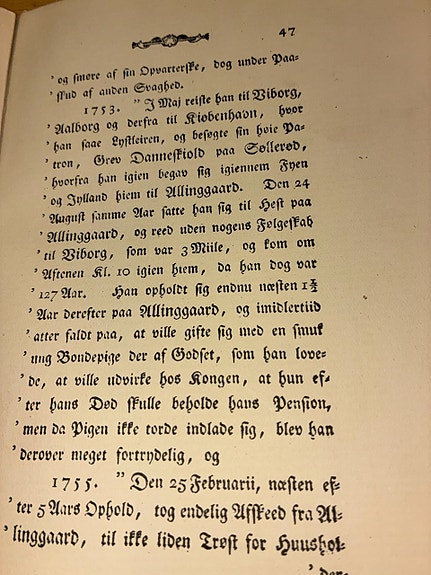 47
’ og smøre af sin Opvarterske, dog under Paa-
’ skud af anden Svaghed.
1753. ” I Maj reiste han til Viborg,
’ Aalborg og derfra til Kiøbenhavn, hvor
’ han saae Lystleiren, og besøgte sin høie Pa-
’ tron, Grev Danneskiold paa Søllerød,
’ hvorfra han igien begav sig igiennem Fyen
’ og Jylland hiem til Allinggaard. Den 24
’ August samme Aar satte han sig til Hest paa
’ Allinggaard, og reed uden nogens Følgeskab
’ til Viborg, som var 3 Miile, og kom om
’ Aftenen Kl. 10 igien hiem, da han dog var
’ 127 Aar. Han opholdt sig endnu næsten 1½
’ Aar derefter paa Allinggaard, og imidlertiid
’ atter faldt paa, at ville gifte sig med en smuk
’ ung Bondepige der af Godset, som han love-
’ de, at ville udvirke hos Kongen, at hun ef-
’ ter hans Død skulle beholde hans Pension,
’ men da Pigen ikke torde indlade sig, blev han
’ derover meget fortrydelig, og
1755. ” Den 25 Februarii, næsten ef-
’ ter 5 Aars Ophold, tog endelig Afskeed fra Al-
’ linggaard, til ikke liden Trøst for Huushol-
’ der-